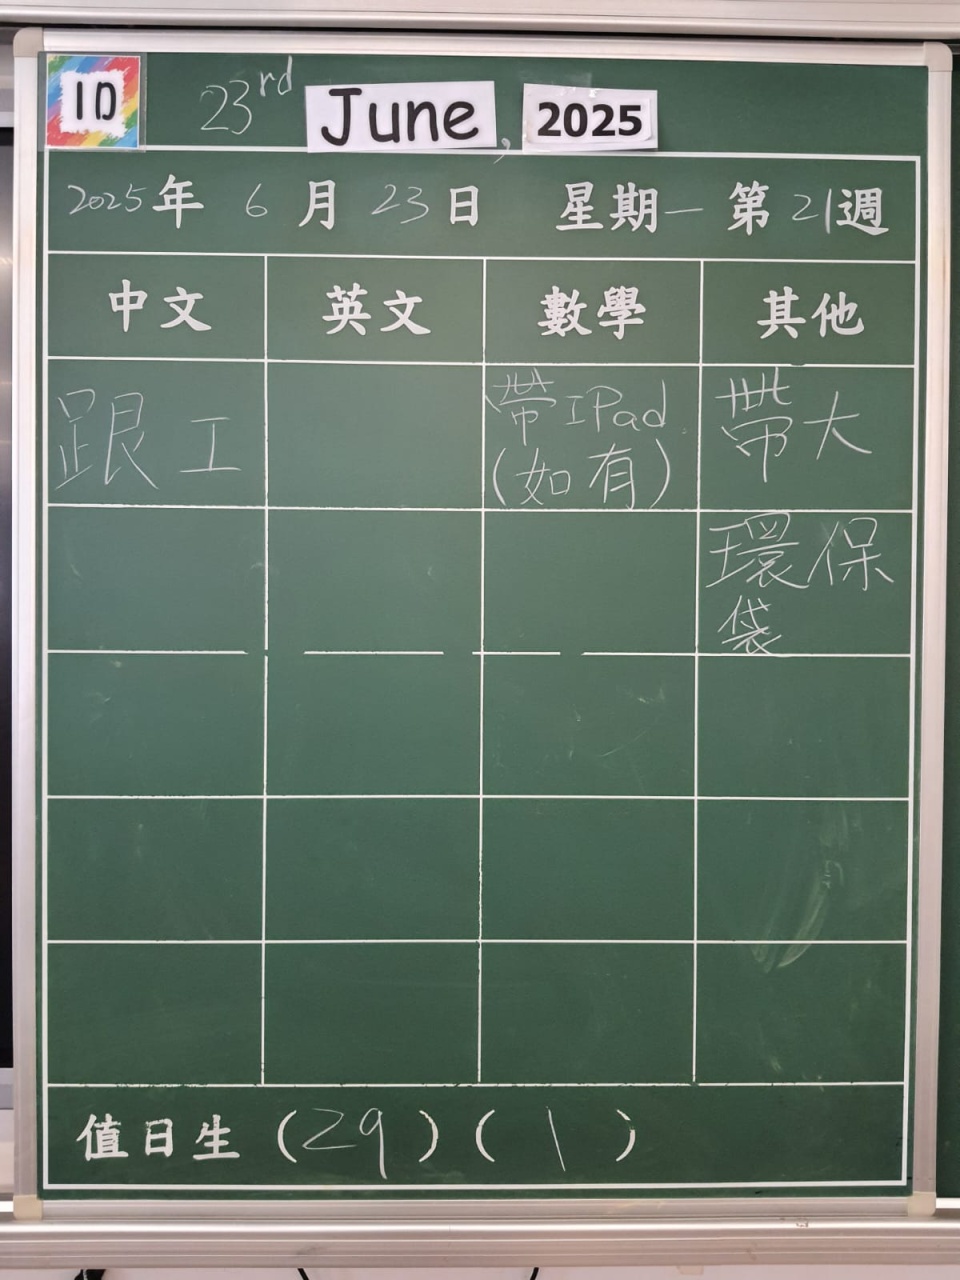 1D
23rd June, 2025
2025年 6月 23日 星期一 第21週
中文 英文 數學 其他
跟工
帶IPad
(如有)
帶大
環保
袋
值日生 (29) (1)